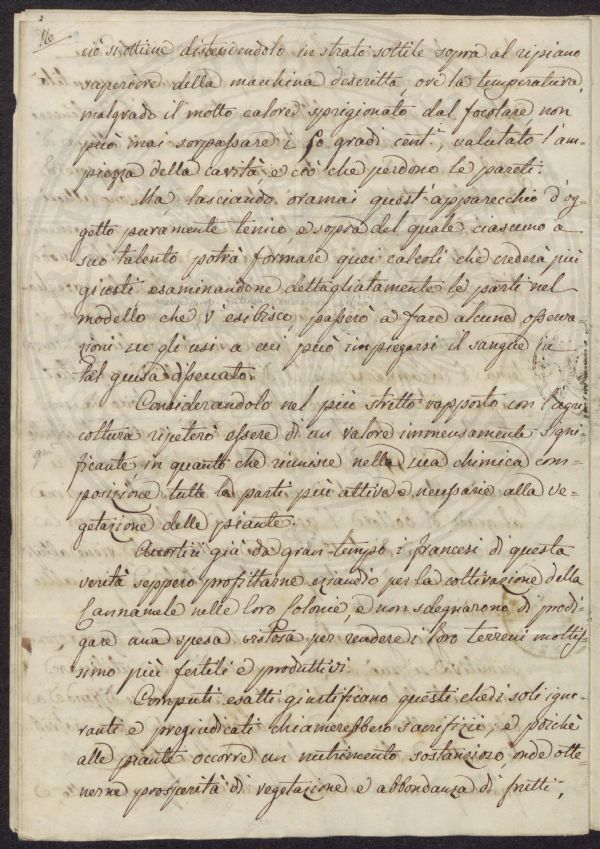 16
ciò si ottiene distendendolo in strato sottile sopra al ripiano
superiore della macchina descritta, ove la temperatura,
malgrado il molto calore sprigionato dal focolare non
può mai sorpassare i 50 gradi cent., valutato l'am-
piezza della cavità, e ciò che perdono le pareti.
Ma, lasciando oramai quest'apparecchio d'og-
getto puramente tenico, e sopra del quale ciascuno a
suo talento potrà formare quei calcoli che crederà più
giusti esaminandone dettagliatamente le parti nel
modello che v'esibisco, passerò a fare alcune osserva-
zioni su gli usi a cui può impiegarsi il sangue in
tal guisa disseccato.
Considerandolo nel più stretto rapporto con l'agri
coltura ripeterò essere di un valore immensamente signi
ficante in quanto che riunisce nella sua chimica com-
posizione tutte le parti più attive e necessarie alla ve-
getazione delle piante.
Accortisi già da gran tempo i francesi di questa
verità seppero profittarne eziandio per la coltivazione della
Cannamele nelle loro Colonie, e non sdegnarono di prodi-
gare una spesa vistosa per rendere i loro terreni moltis-
simo più fertili e produttivi.
Computi esatti giustificano questi che i soli igno-
ranti e pregiudicati chiamerebbero sacrifizii; e poichè
alle piante occorre un nutrimento sostanzioso, onde otte-
nerne prosperità di vegetazione e abbondanza di frutti,